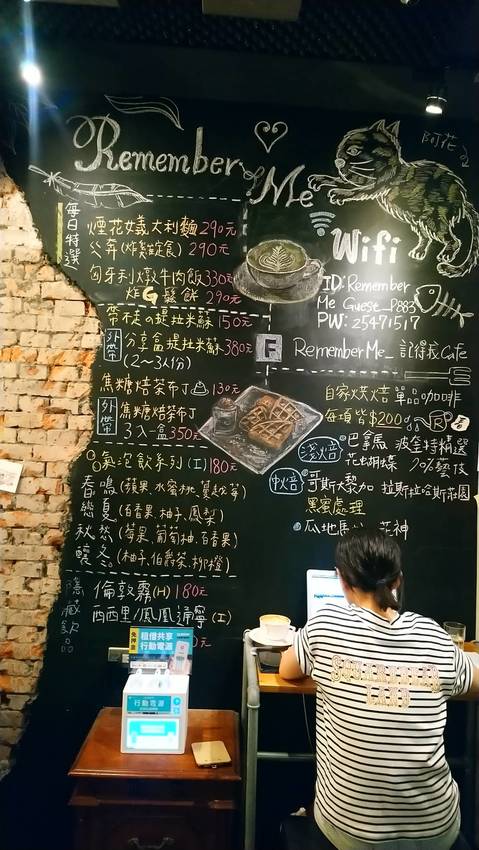 Remember Me
阿花
每日特選
煙花女義大利麵290元
公奔(炸豬定食) 290元
匈牙利燉牛肉飯330元
炸G鬆餅 290元
帶你走の提拉米蘇150元
外帶
分享盒提拉米蘇380元
(2~3人份)
焦糖焙茶布丁 130元
外帶
焦糖焙茶布丁
3入一盒350元
氣泡飲系列(I)180元
春鳴(蘋果、水蜜桃、蔓越莓)
戀夏(百香果、柚子、鳳梨)
秋愁(莓果、葡萄柚、百香果)
暖冬(柚子、伯爵茶、柳橙)
隱藏飲品
倫敦霧(H)180元
西西里/鳳凰(I)
Wifi
ID:Remember
Me Guest_P883
PW: 25471517
F RememberMe_記得我Cafe
自家烘焙 單品咖啡
每項皆$200
淺焙
巴拿馬 波奎特精選
花蝴蝶 90%藝伎
中焙
哥斯大黎加 拉斯拉哈斯莊園
黑蜜處理
瓜地馬 花神
免押金
租借共享
行動電源
行動電源